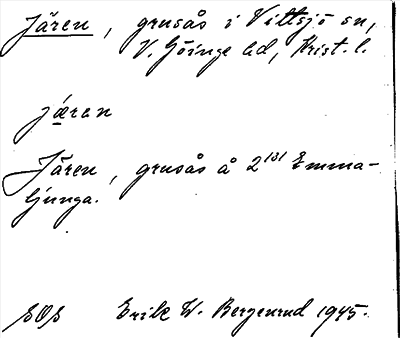 Jären, grusås i Vittsjö sn,
V. Göinge hd, Krist. l.
jǽren
Jären, grusås å 2¹⁸¹ Emma-
ljunga.
SOS Erik W. Bergenrud 1945.